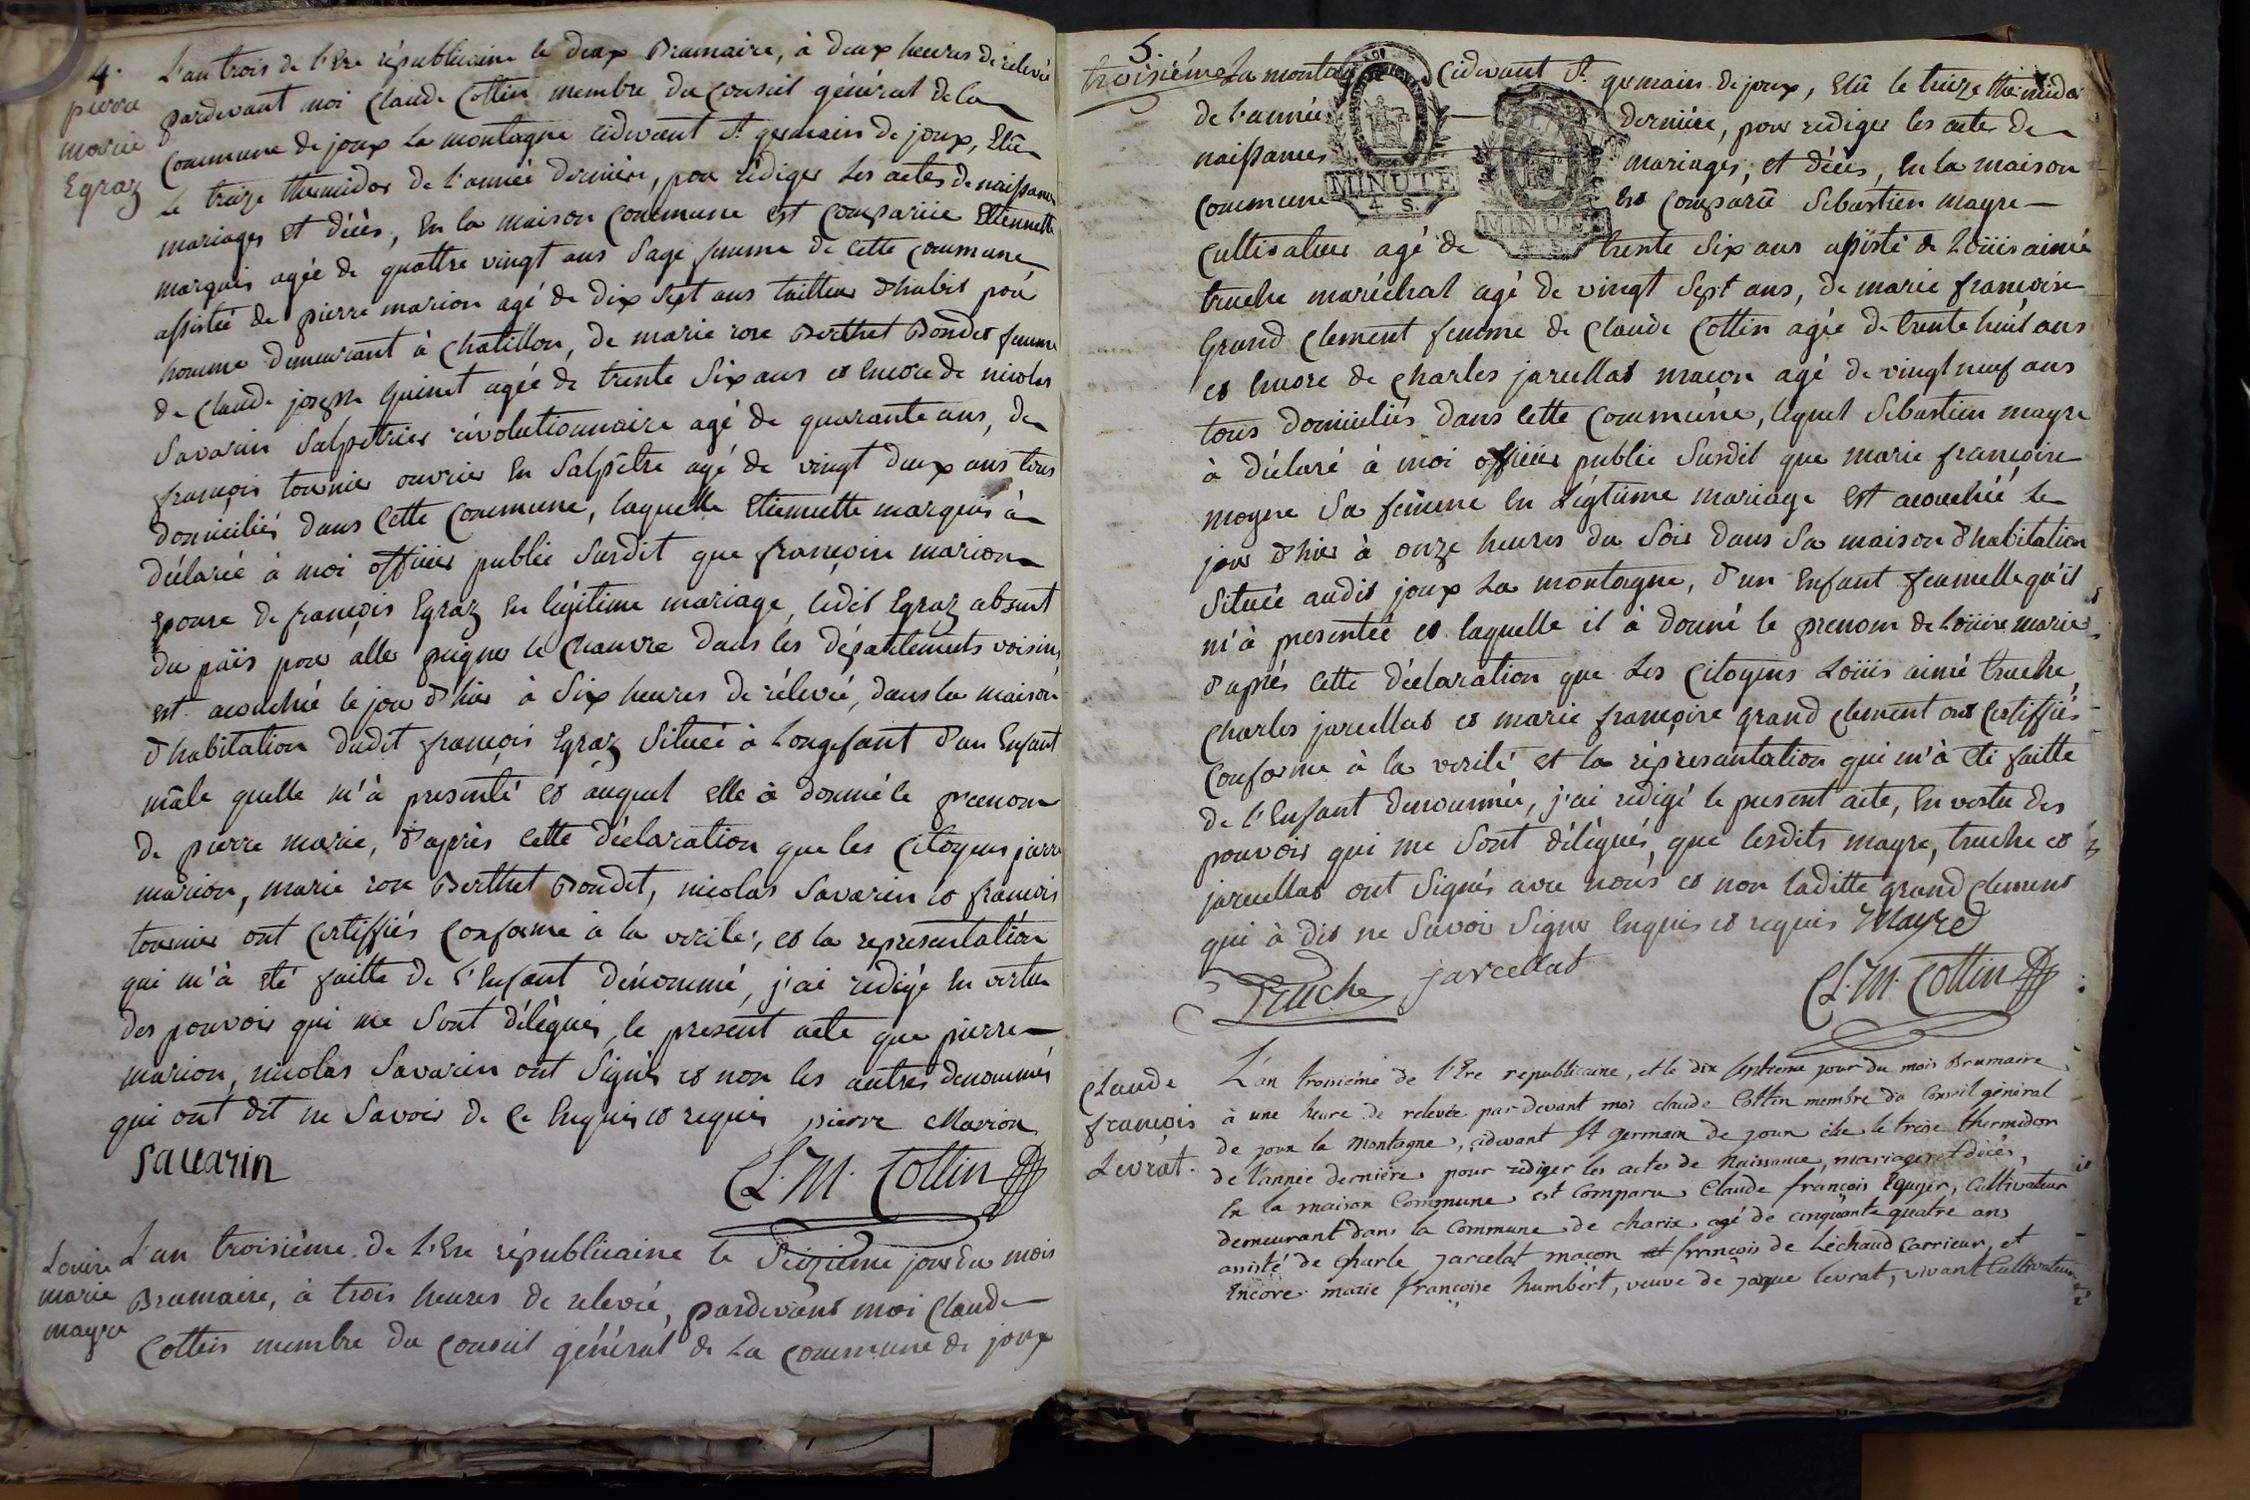 4.
pierre
marie
Egraz
L'an trois de l'Ere républicaine le deux Brumaire, à deux heures de relevée
pardevant moi Claude Cottin membre du Conseil général de la
Commune de joux la montagne cidevant St. germain de joux, Elû
le treize thermidor de l'année dernière, pour rédiger les actes de naissances
mariages et décès, En la maison Commune est comparüe Etiennette
marquis agée de quattre vingt ans Sage femme de cette commune
assistée de pierre marion agé de dix sept ans tailleur d'habit pour
homme demeurant à Chatillon, de marie rose Berthet Bondet femme
de Claude joseph Guinet agée de trente Six ans et Encore de nicolas
Savarin Salpêtrier révolutionnaire agé de quarante ans, de
françois tournier ouvrier En Salpêtre agé de vingt deux ans tous
domiciliés dans Cette Commune, laquelle Etiennette marquis à
déclarée à moi officier public Susdit que françoise marion
Epouse de françois Egraz En légitime mariage, ledit Egraz absent
du païs pour aller peigner le Chanvre dans les départements voisins,
est acouchée le jour d'hier à Six heures de rélevée, dans la maison
d'habitation dudit françois Egraz Située à Longefant d'un Enfant
mâle quelle m'à presenté et auquel elle à donné le prenom
de pierre marie, d'après cette déclaration que les Citoyens pierre
marion, marie rose Berthet Bondet, nicolas Savarin et francois
tournier ont certiffiés Conforme à la verité, et la representation
qui m'à été faitte de l'Enfant dénommé, j'ai redigé En vertu
des pouvoir qui me Sont délégués, le present acte que pierre
marion, nicolas Savarin ont Signés et non les autres denommés
qui ont dit ne Savoir de Ce Enquis et requis pierre Marion
Savarin
Cl. M. Cottin
Louise
marie
mayre
L'an troisième de L'Ere républicaine le Seizieme jour du mois
Brumaire, à trois heures de relevée, pardevant moi Claude
Cottin membre du Conseil général de la Commune de joux
5.
troisiéme
La montagne Cidevant St. germain de joux, Elû le treize thermidor
de l'année dernière, pour rediger les actes de
naissances mariages, et décès, En la maison
Commune Est Comparû Sébastien mayre
MINUTE
4. S.
MINUTE
4. S.
Cultivateur agé de trente Six ans assisté de Loüis aimé
truche maréchal agé de vingt Sept ans, de marie françoise
Grand Clement femme de Claude Cottin agée de trente huit ans
et Encore de Charles jarcellat maçon agé de vingt neuf ans
tous domiciliés dans Cette Commune, lequel Sebastien mayre
à déclaré à moi officier public Susdit que marie françoise
moyne Sa femme En Légitime mariage est acouchée le
jour d'hier à onze heures du Soir dans Sa maison d'habitation
Située audit joux la montagne, d'un Enfant femelle qu'il
m'à presentée et laquelle il à donné le prenom de Loüise marie
d'après cette déclaration que les Citoyens Loüis aimé truche,
Charles jarcellat et marie françoise grand clement ont Certiffiés
Conforme à la verité et la répresantation qui m'à été faitte
de l'Enfant denommée, j'ai redigé le present acte, En vertu des
pouvoir qui me Sont délégués, que lesdits mayre, truche et
jarcellat ont Signés avec nous et non laditte grand Clement
qui à dit ne Savoir Signer Enquis et requis Mayre
Truche jarcellat
Cl. M. Cottin
Claude
françois
Levrat.
L'an troisiéme de l'Ere republicaine, et le dix septieme jour du mois Brumaire
à une heure de relevée par devant moi claude Cottin membre du Conseil général
de joux la montagne, cidevant St germain de joux élu le treize thermidor
de l'année derniére pour rediger les actes de Naissance, mariages et décés,
En la maison Commune est comparu Claude françois Eguyer, Cultivateur
demeurant dans la Commune de charix agé de cinquante quatre ans
assisté de Charle jarcelat maçon françois de Léchaud Carrieur, et
Encore marie françoise humbert, veuve de jaque levrat, vivant Cultivateur